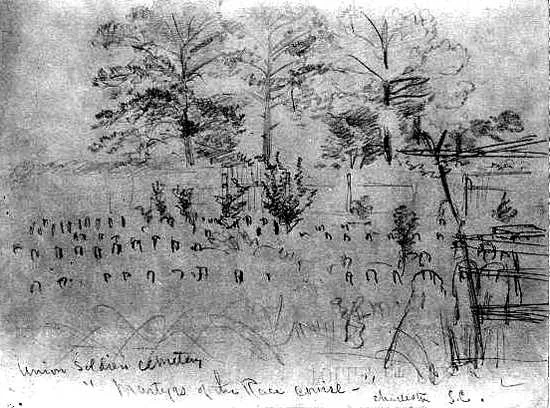 Union Soldiers cemetery
"Martyrs of the Race Course -"
Charleston S.C.